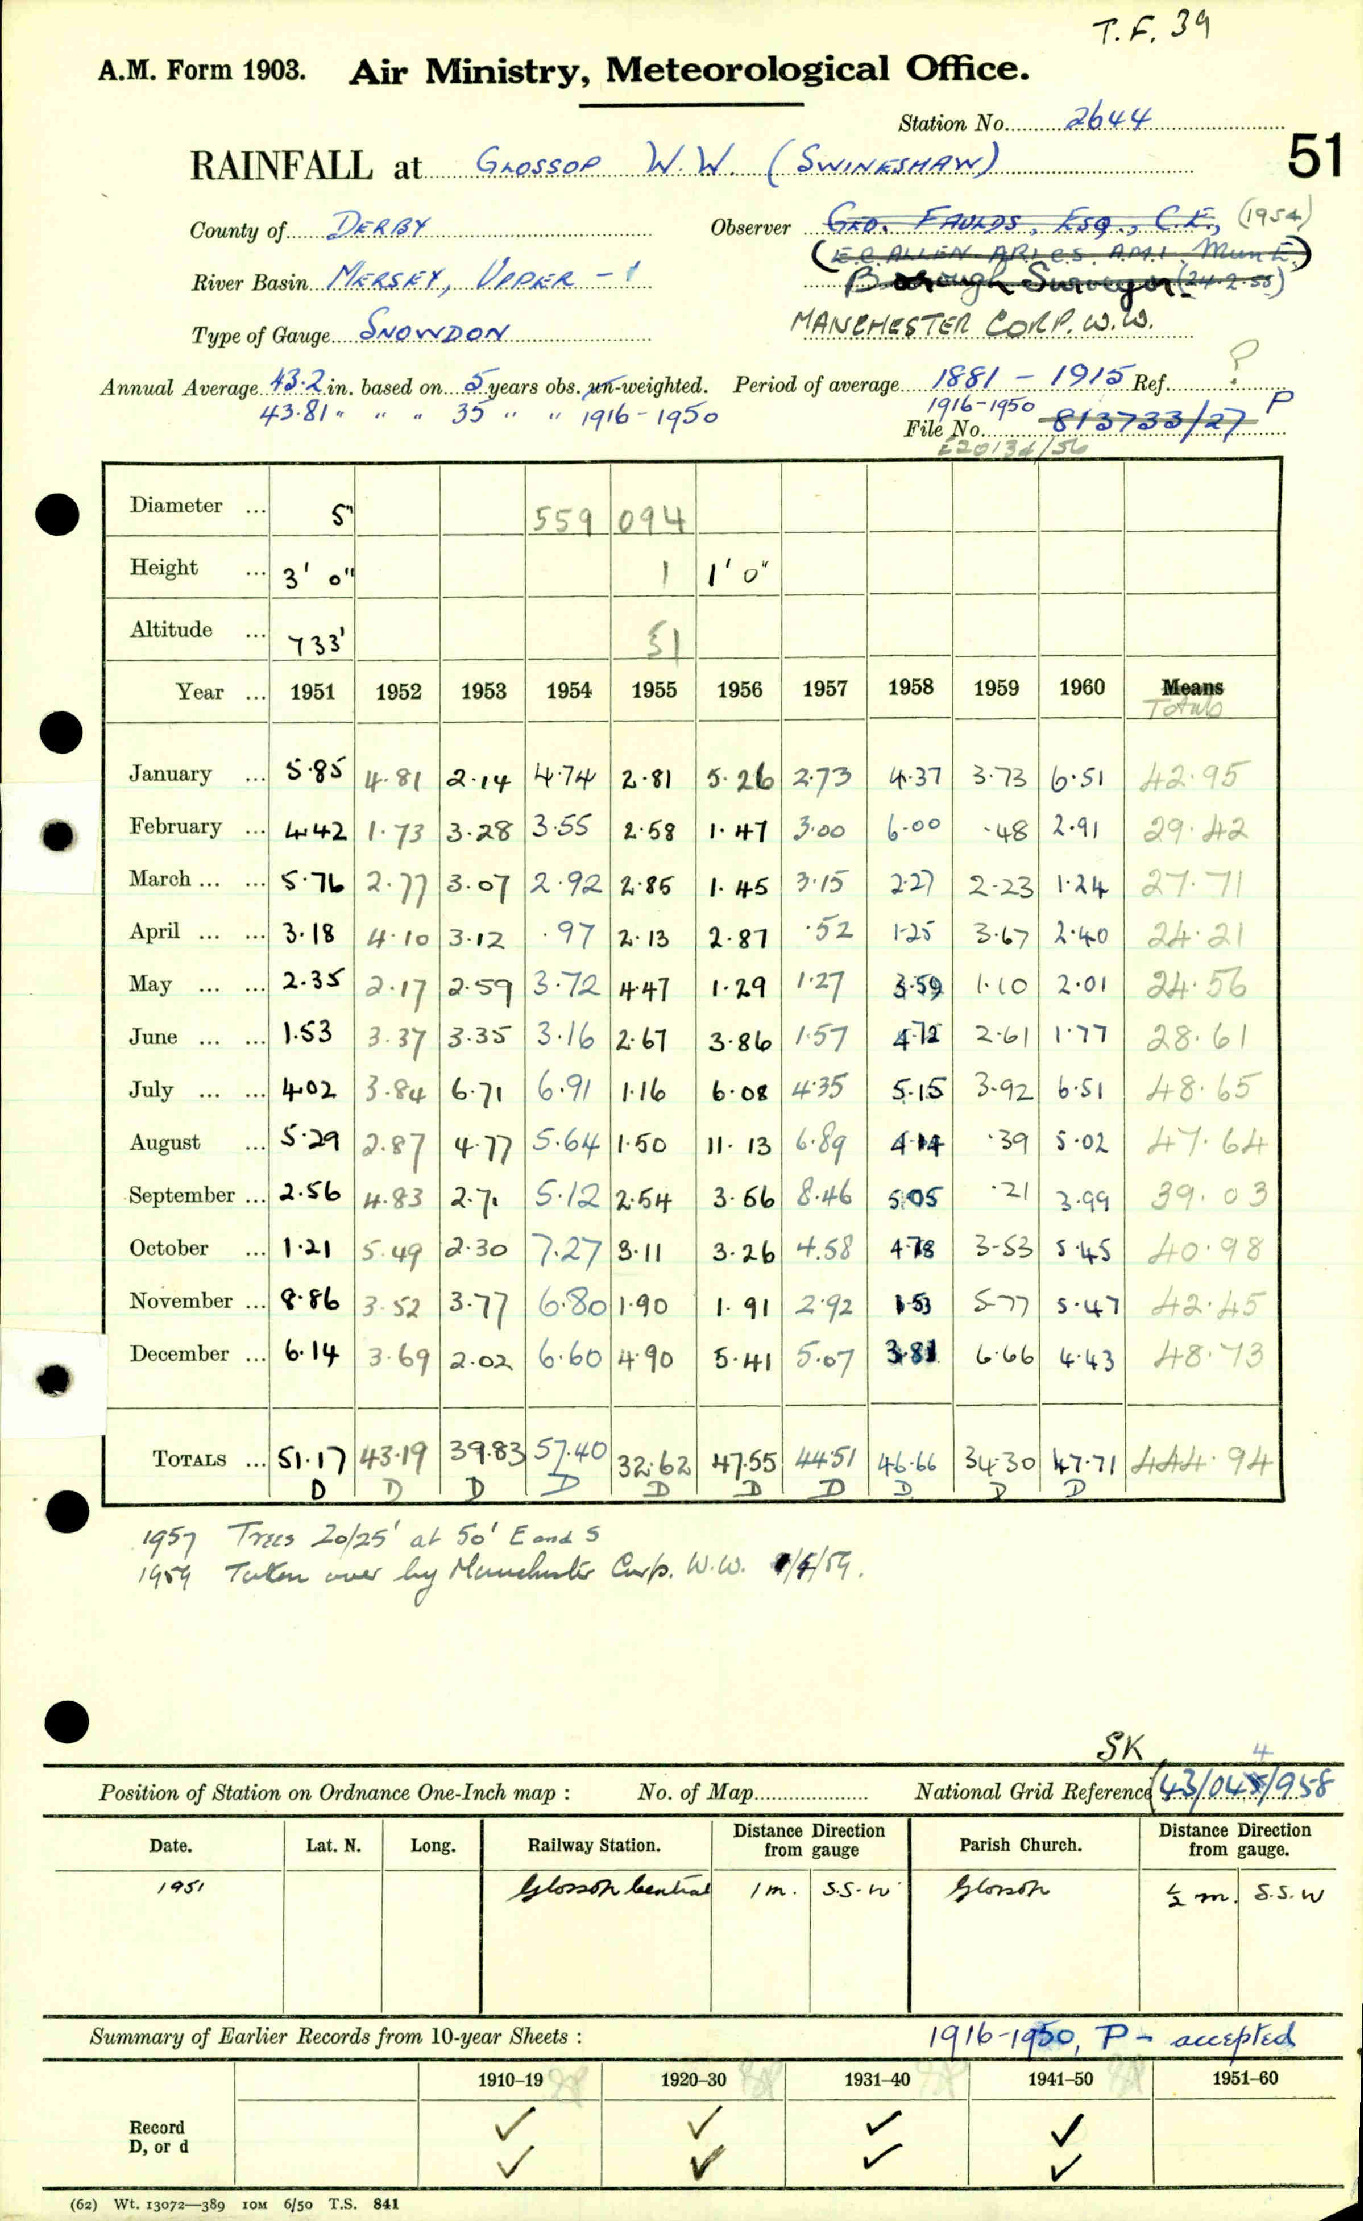 T.F. 39
A.M. Form 1903. Air Ministry, Meteorological Office.
Station No. 2644
51
RAINFALL at GLOSSOP W.W. (SWINESHAW)
County of DERBY Observer GEO. FAULDS, ESQ., C.E., (1954)
(E.C. ALLEN A.R.I.C.S. A.M.I. Mun E.)
River Basin MERSEY, UPPER - 1 Borough Surveyor (24.2.55)
Type of Gauge SNOWDON MANCHESTER CORP. W.W.
Annual Average 43.2 in. based on 5 years obs. un-weighted. Period of average 1881 - 1915 Ref. ?
43.81 " " " 35 " " 1916-1950 1916-1950 P
File No. 813733/27
E20134/56
Diameter ... 5" 559 094
Height ... 3' 0" 1 1' 0"
Altitude ... 733' 51
Year ... 1951 1952 1953 1954 1955 1956 1957 1958 1959 1960 Means
Totals
January ... 5.85 4.81 2.14 4.74 2.81 5.26 2.73 4.37 3.73 6.51 42.95
February ... 4.42 1.73 3.28 3.55 2.58 1.47 3.00 6.00 .48 2.91 29.42
March ... ... 5.76 2.77 3.07 2.92 2.85 1.45 3.15 2.27 2.23 1.24 27.71
April ... ... 3.18 4.10 3.12 .97 2.13 2.87 .52 1.25 3.67 2.40 24.21
May ... ... 2.35 2.17 2.59 3.72 4.47 1.29 1.27 3.59 1.10 2.01 24.56
June ... ... 1.53 3.37 3.35 3.16 2.67 3.86 1.57 4.72 2.61 1.77 28.61
July ... ... 4.02 3.84 6.71 6.91 1.16 6.08 4.35 5.15 3.92 6.51 48.65
August ... 5.29 2.87 4.77 5.64 1.50 11.13 6.89 4.14 .39 5.02 47.64
September ... 2.56 4.83 2.71 5.12 2.54 3.56 8.46 5.05 .21 3.99 39.03
October ... 1.21 5.49 2.30 7.27 3.11 3.26 4.58 4.78 3.53 5.45 40.98
November ... 8.86 3.52 3.77 6.80 1.90 1.91 2.92 1.53 5.77 5.47 42.45
December ... 6.14 3.69 2.02 6.60 4.90 5.41 5.07 3.81 6.66 4.43 48.73
TOTALS ... 51.17 43.19 39.83 57.40 32.62 47.55 44.51 46.66 34.30 47.71 444.94
D D D D D D D D D D
1957 Trees 20/25' at 50' E and S
1959 Taken over by Manchester Corp. W.W. 1/4/59.
SK 4
Position of Station on Ordnance One-Inch map : No. of Map National Grid Reference (43/045/958
Date. Lat. N. Long. Railway Station. Distance from gauge Direction Parish Church. Distance from gauge. Direction
1951 Glossop Central 1 m. S.S.W Glossop ½ m. S.S.W
Summary of Earlier Records from 10-year Sheets : 1916-1950, P - accepted
1910-19 1920-30 1931-40 1941-50 1951-60
Record ✓ ✓ ✓ ✓
D, or d ✓ ✓ ✓ ✓
(62) Wt. 13072—389 10M 6/50 T.S. 841